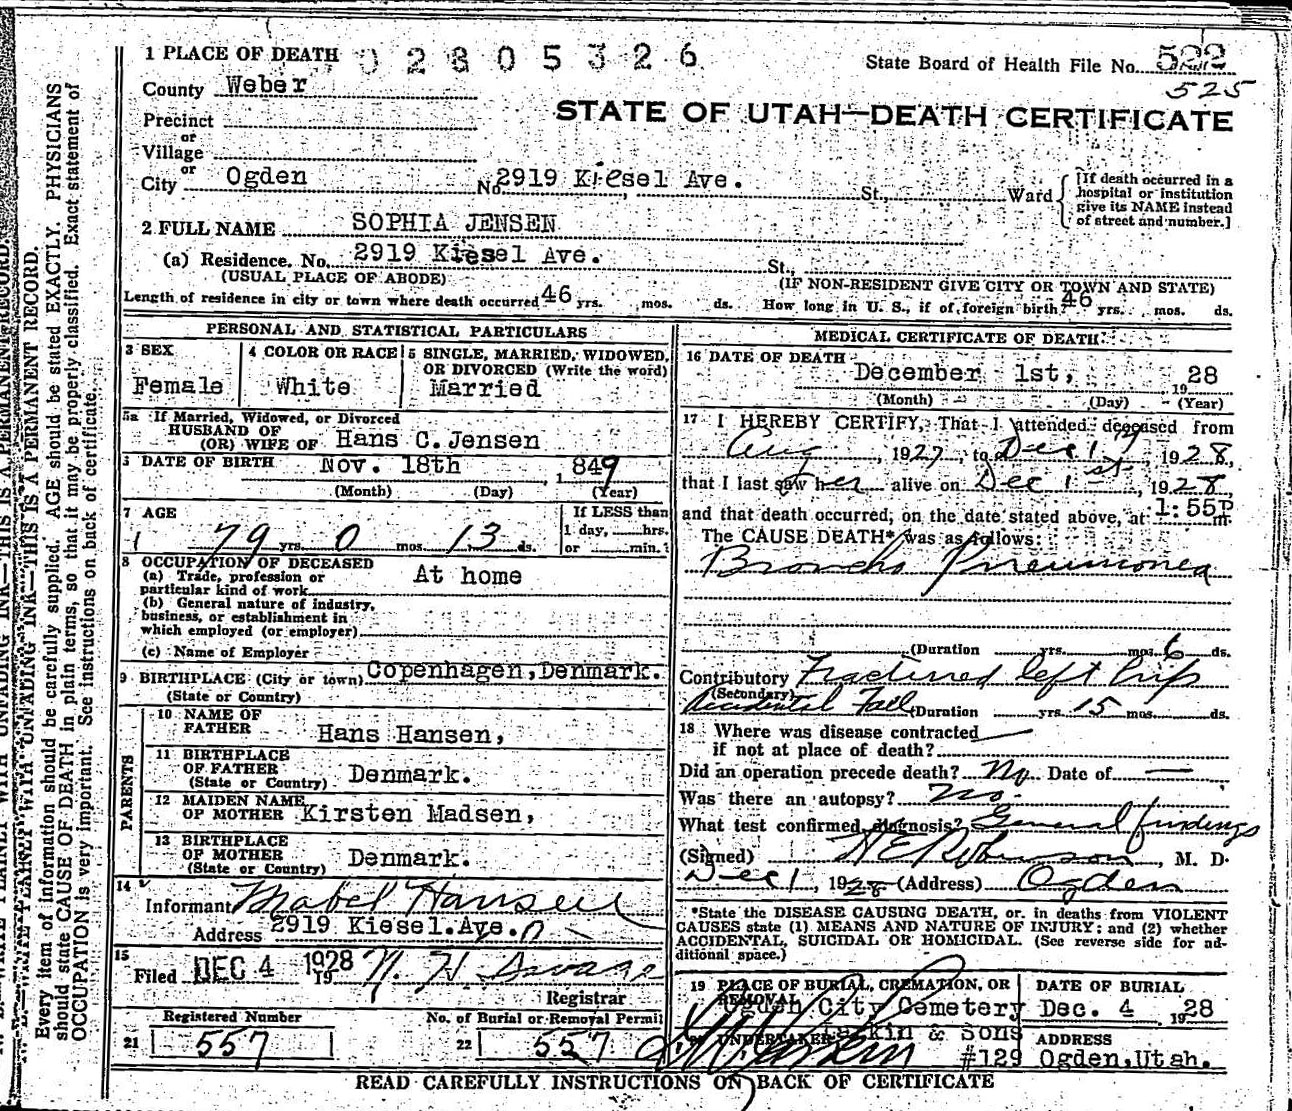 1 PLACE OF DEATH 02805326
State Board of Health File No. 522
525
County Weber
STATE OF UTAH—DEATH CERTIFICATE
Precinct
or
Village
or
City Ogden No. 2919 Kiesel Ave. St., Ward
[If death occurred in a
hospital or institution
give its NAME instead
of street and number.]
2 FULL NAME SOPHIA JENSEN
(a) Residence. No. 2919 Kiesel Ave. St.,
(USUAL PLACE OF ABODE) (IF NON-RESIDENT GIVE CITY OR TOWN AND STATE)
Length of residence in city or town where death occurred 46 yrs. mos. ds. How long in U. S., if of foreign birth? 46 yrs. mos. ds.
PERSONAL AND STATISTICAL PARTICULARS
3 SEX
Female
4 COLOR OR RACE
White
5 SINGLE, MARRIED, WIDOWED,
OR DIVORCED (Write the word)
Married
5a If Married, Widowed, or Divorced
HUSBAND OF
(OR) WIFE OF Hans C. Jensen
DATE OF BIRTH Nov. 18th , 1849
(Month) (Day) (Year)
7 AGE
79 yrs. 0 mos. 13 ds.
If LESS than
1 day, hrs.
or min.?
8 OCCUPATION OF DECEASED
(a) Trade, profession or
particular kind of work At home
(b) General nature of industry,
business, or establishment in
which employed (or employer)
(c) Name of Employer
9 BIRTHPLACE (City or town) Copenhagen, Denmark.
(State or Country)
PARENTS
10 NAME OF
FATHER Hans Hansen,
11 BIRTHPLACE
OF FATHER
(State or Country) Denmark.
12 MAIDEN NAME
OF MOTHER Kirsten Madsen,
13 BIRTHPLACE
OF MOTHER
(State or Country) Denmark.
14
Informant Mabel Hansen
Address 2919 Kiesel Ave.
15
Filed DEC 4 1928 N. H. Savage
19
Registrar
Registered Number
21 557
No. of Burial or Removal Permit
22 557
MEDICAL CERTIFICATE OF DEATH
16 DATE OF DEATH
December 1st, 1928
(Month) (Day) (Year)
17 I HEREBY CERTIFY, That I attended deceased from
Aug , 1927, to Dec 1st, 1928,
that I last saw her alive on Dec 1st, 1928
and that death occurred, on the date stated above, at 1:55P m.
The CAUSE DEATH* was as follows:
Broncho Pneumonea
(Duration yrs. mos. 6 ds.
Contributory Fractured left hip
(Secondary)
Accidental Fall (Duration yrs. 15 mos. ds.
18 Where was disease contracted
if not at place of death?
Did an operation precede death? No Date of —
Was there an autopsy? No.
What test confirmed diagnosis? General findings
(Signed) H E Robinson , M. D.
Dec 1 , 1928 (Address) Ogden
*State the DISEASE CAUSING DEATH, or in deaths from VIOLENT
CAUSES state (1) MEANS AND NATURE OF INJURY; and (2) whether
ACCIDENTAL, SUICIDAL OR HOMICIDAL. (See reverse side for ad-
ditional space.)
19 PLACE OF BURIAL, CREMATION, OR
REMOVAL
Ogden City Cemetery
DATE OF BURIAL
Dec. 4 1928
UNDERTAKER Larkin & Sons
#129
ADDRESS
Ogden, Utah.
READ CAREFULLY INSTRUCTIONS ON BACK OF CERTIFICATE
Every item of information should be carefully supplied. AGE should be stated EXACTLY. PHYSICIANS
should state CAUSE OF DEATH in plain terms, so that it may be properly classified. Exact statement of
OCCUPATION is very important. See instructions on back of certificate.